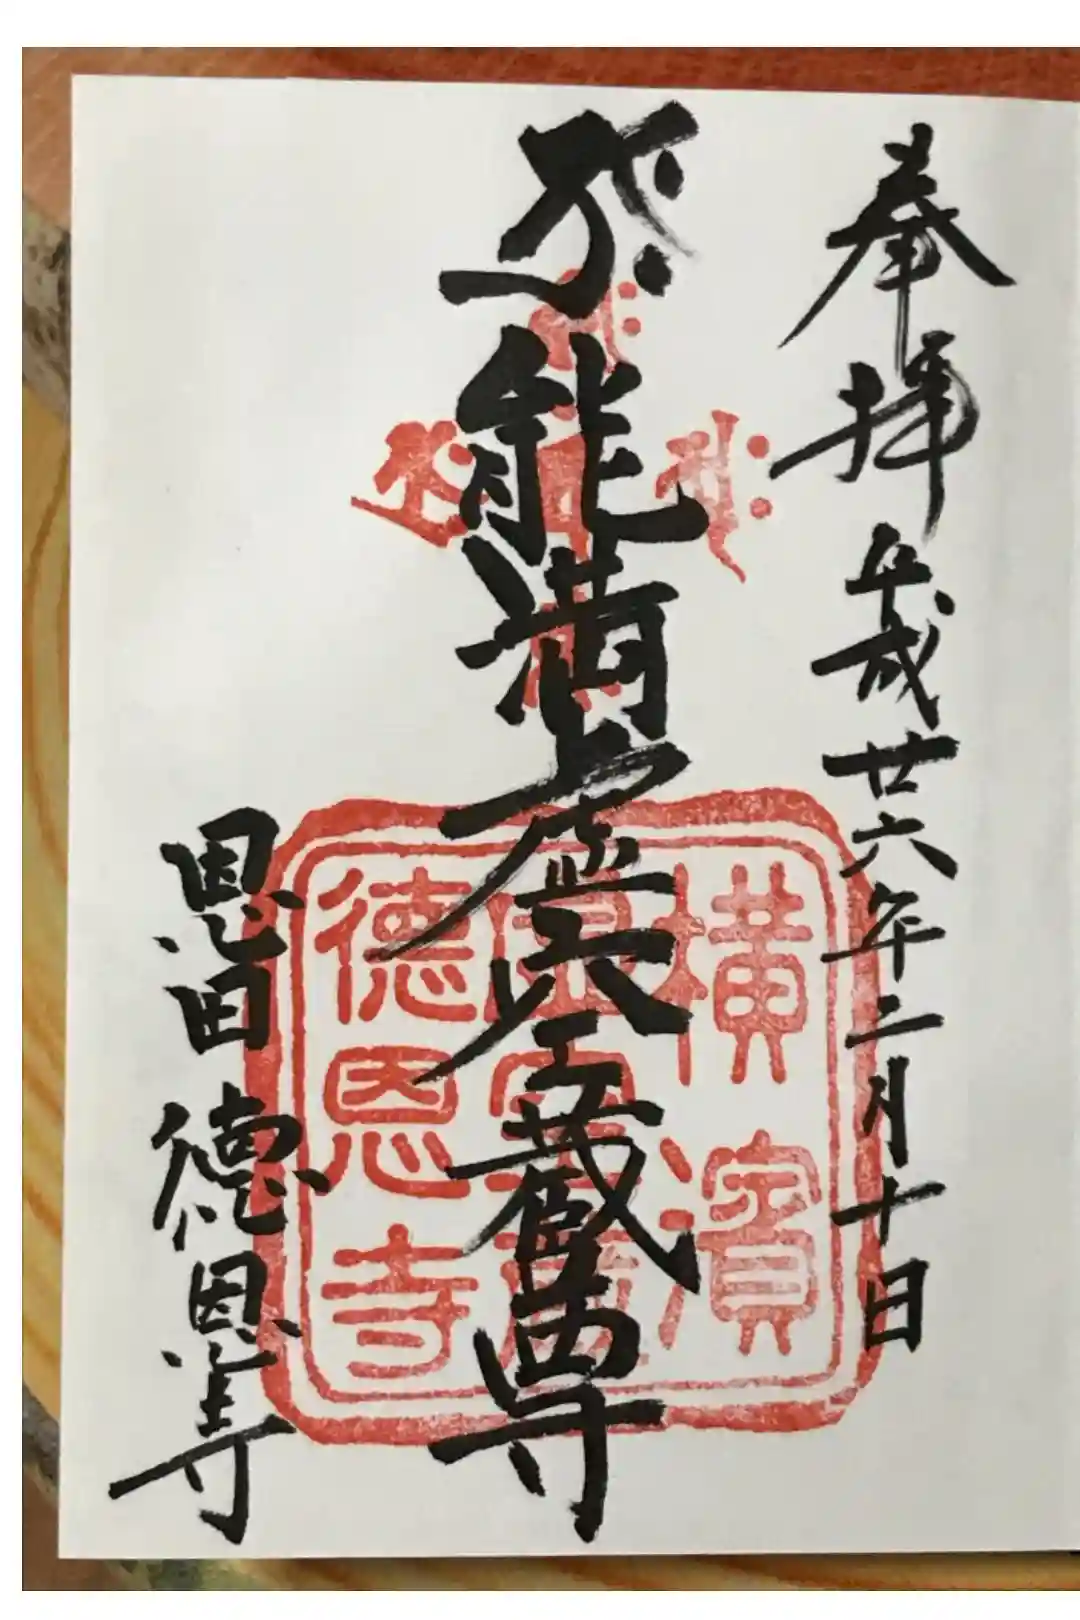 奉拝 平成廿六年二月十日
能満虚空蔵尊
恩田 徳恩寺
横濱
虚空蔵
德恩寺